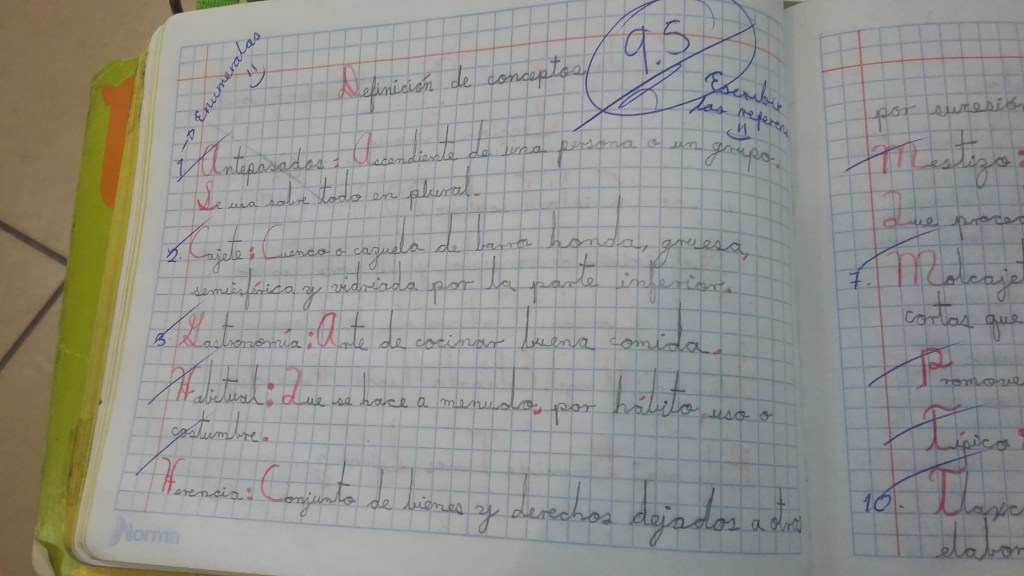 → Enumeralas
9.5
Definición de conceptos
Escribir
las
1. Antepasados: Ascendiente de una persona o un grupo.
Se usa sobre todo en plural.
2. Cajete: Cuenco o cazuela de barro honda, gruesa,
semiesférica y vidriada por la parte inferior.
3. Gastronomía: Arte de cocinar buena comida.
Habitual: Que se hace a menudo, por hábito, uso o
costumbre.
Herencia: Conjunto de bienes y derechos dejados a otra
Norma
por sucesión
Mestizo:
Que
7. Molcajet
cortas que
Promove
Típico:
10.
elabor